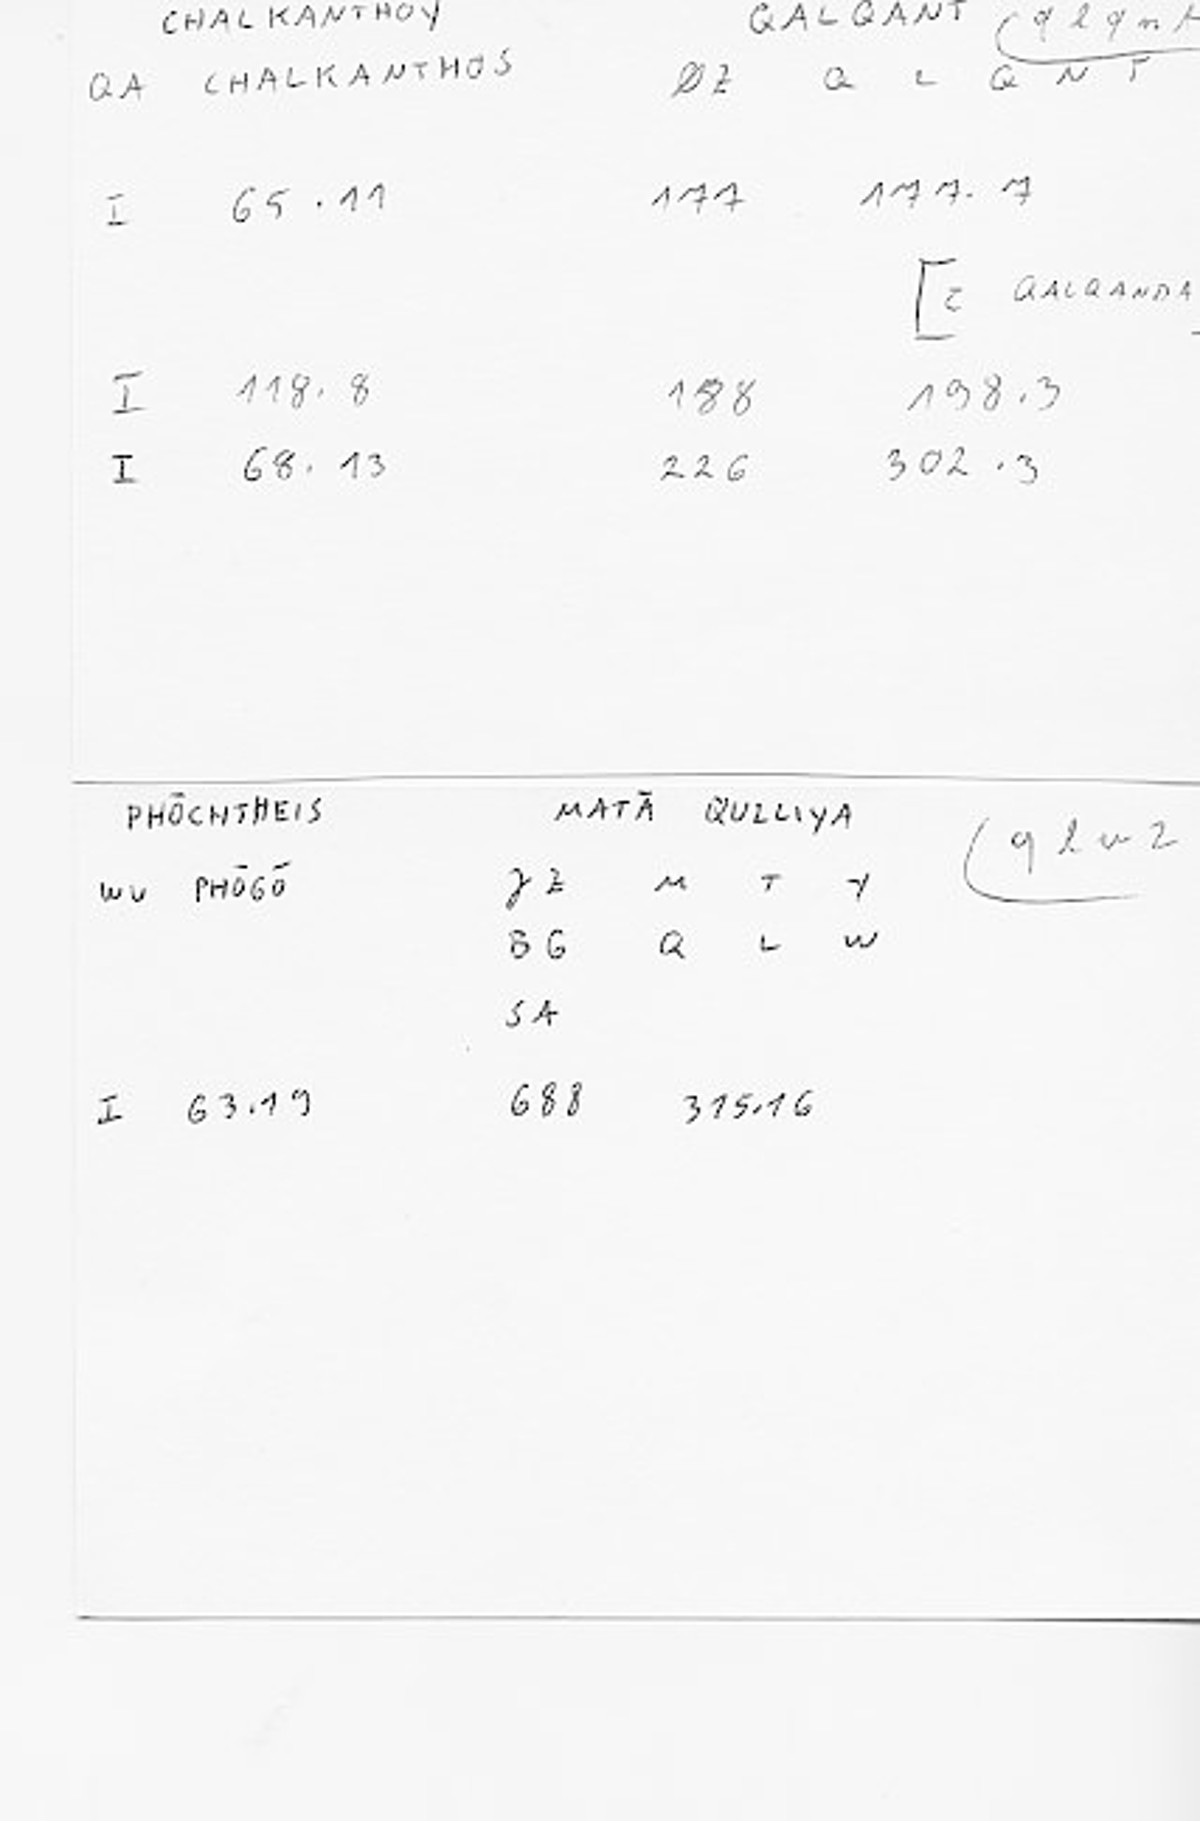 CHALKANTHOY QALQANT (qlqnt
QA CHALKANTHOS ØZ Q L Q N T
I 65.11 177 177.7
[Σ QALQANDA]
I 118.8 188 198.3
I 68.13 226 302.3
PHŌCHTHEIS MATĀ QULLIYA (qlw2
WV PHŌGŌ γZ M T Y
BG Q L W
SA
I 63.19 688 315.16